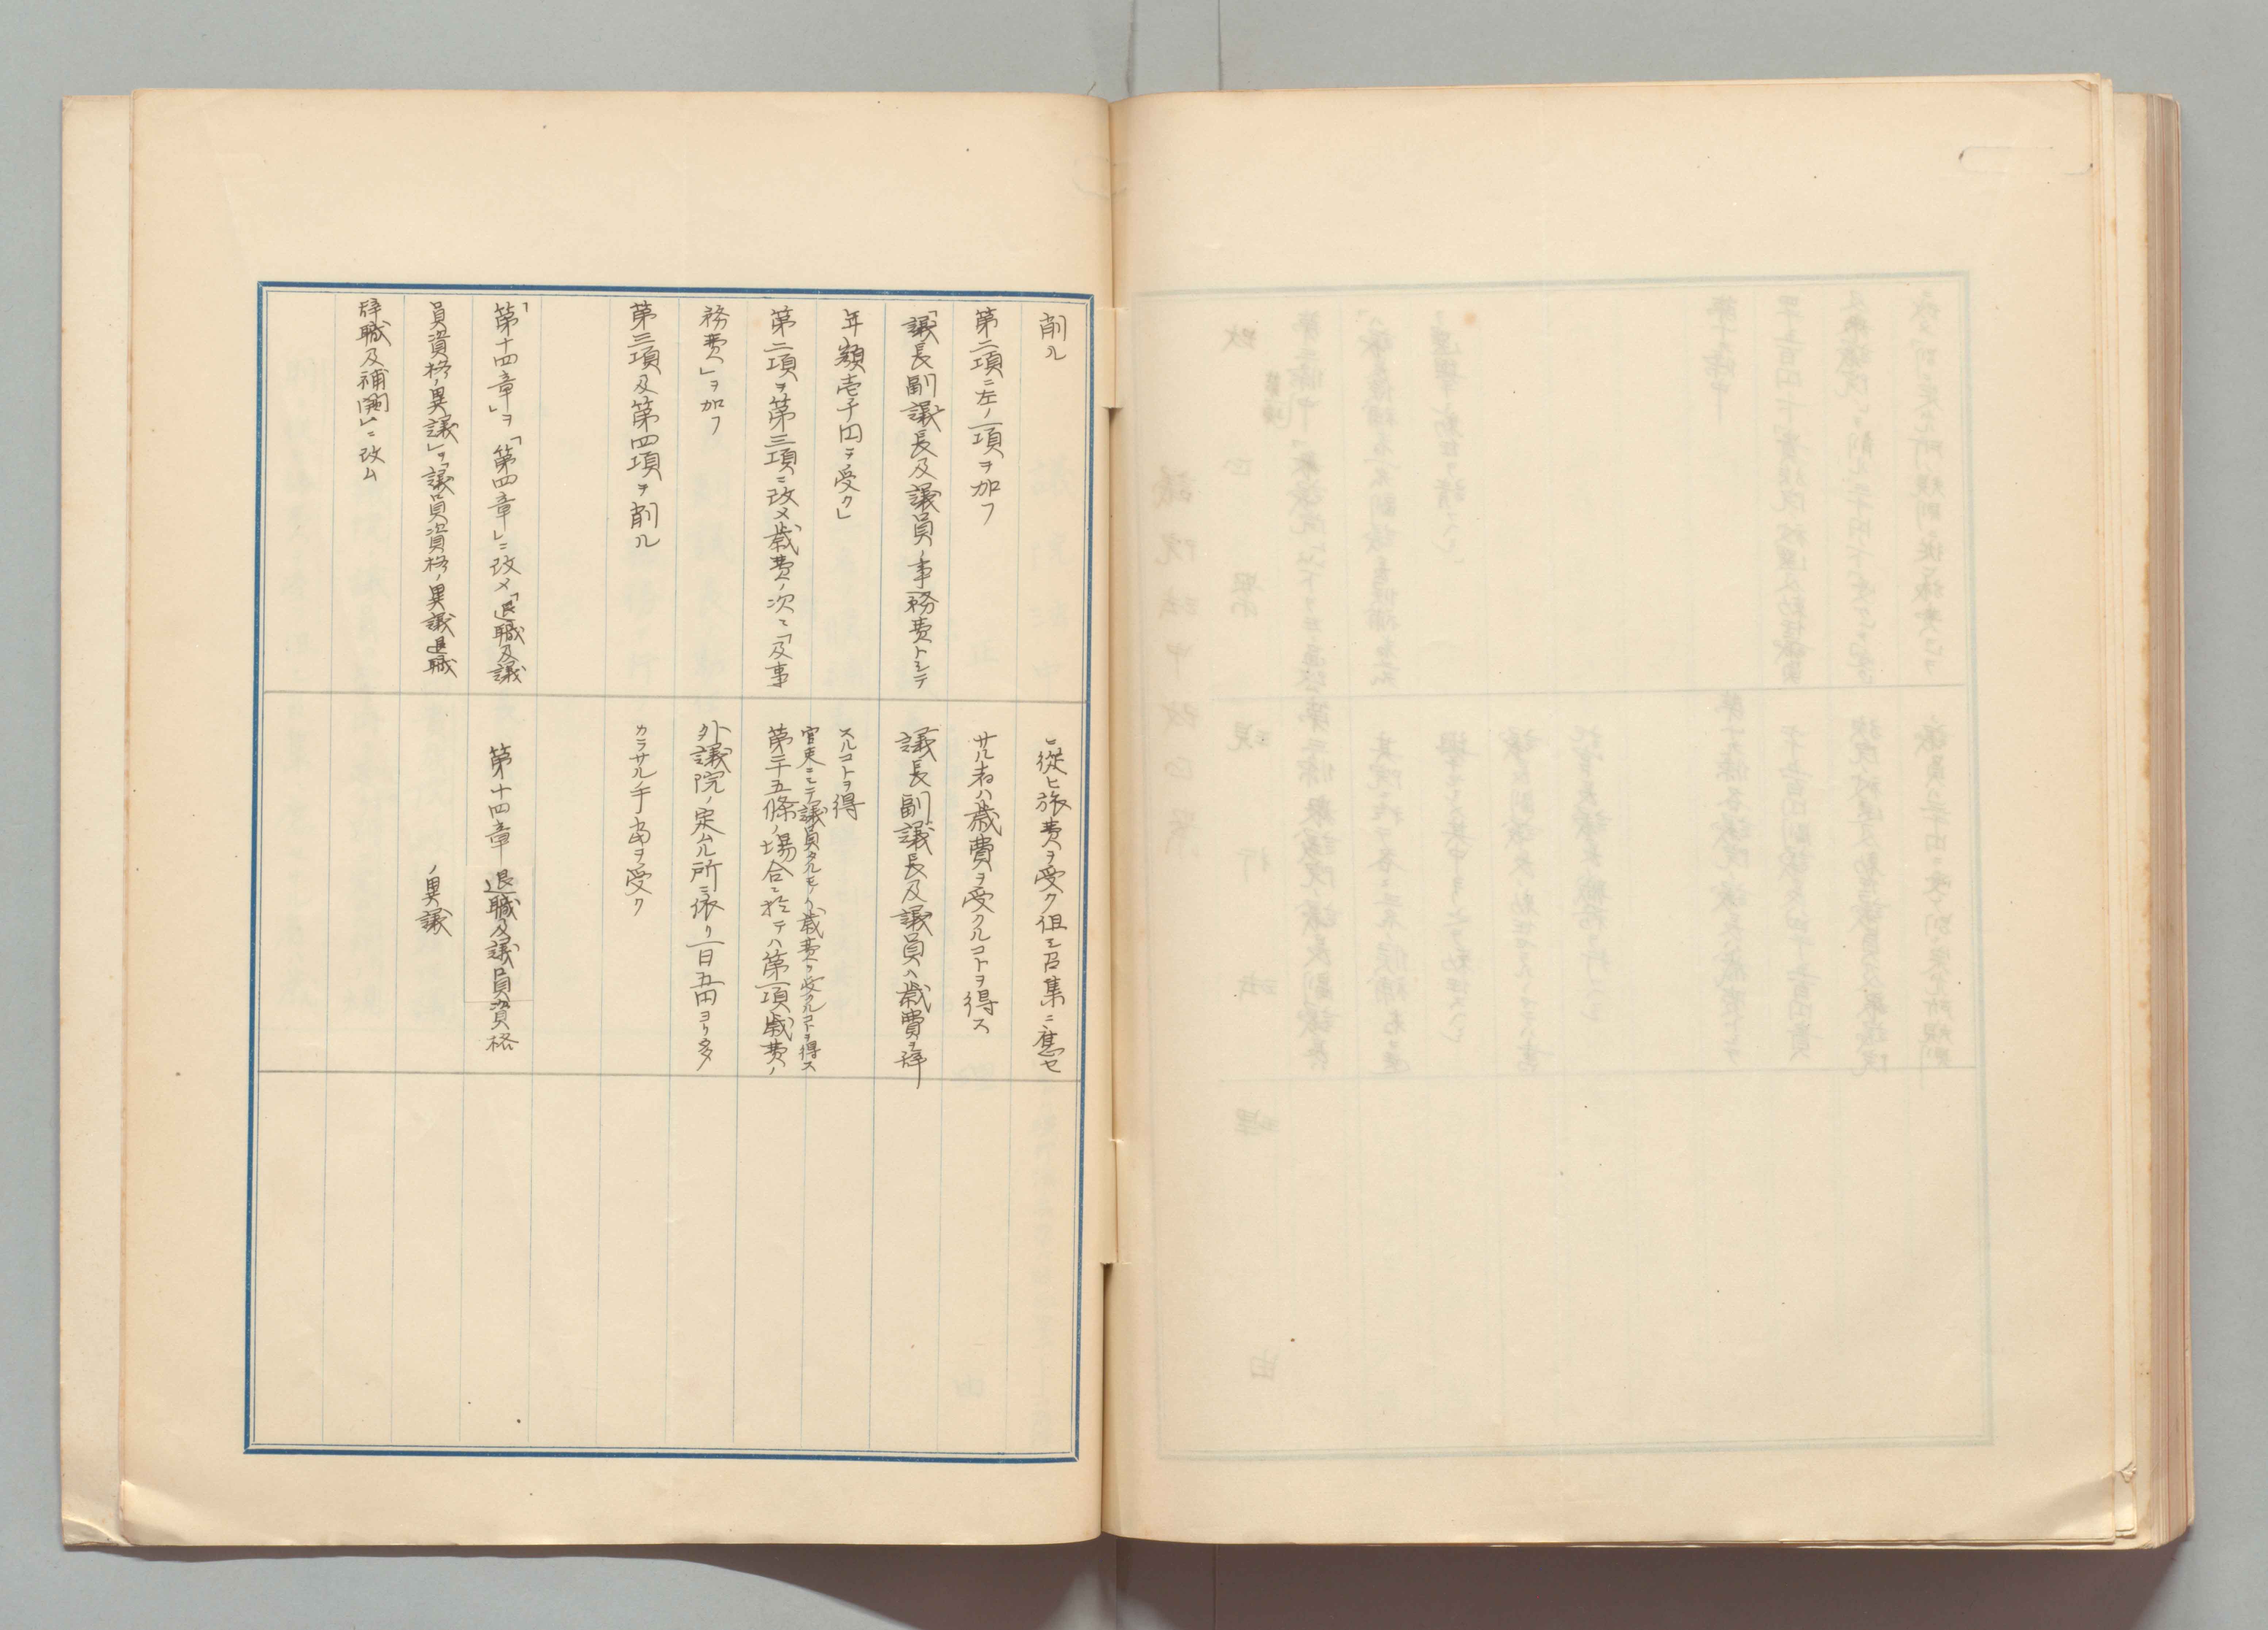 削ル
第二項ニ左ノ一項ヲ加フ
「議長副議長及議員ノ事務費トシテ
年額壱千円ヲ受ク」
第二項ヲ第三項ニ改メ歳費ノ次ニ「及事
務費」ヲ加フ
第三項及第四項ヲ削ル
「第十四章」ヲ「第四章」ニ改メ「退職及議
員資格ノ異議」ヲ「議員資格ノ異議退職
辞職及補闕」ニ改ム
ニ從ヒ旅費ヲ受ク但シ召集ニ應セ
サル者ハ歳費ヲ受クルコトヲ得ス
議長副議長及議員ハ歳費ヲ辞
スルコトヲ得
官吏ニシテ議員タルモノハ歳費ヲ受クルコトヲ得ス
第二十五條ノ場合ニ於テハ第一項歳費ノ
外議院ノ定ムル所ニ依リ一日五円ヨリ多
カラサル手当ヲ受ク
第十四章 退職及議員資格
ノ異議